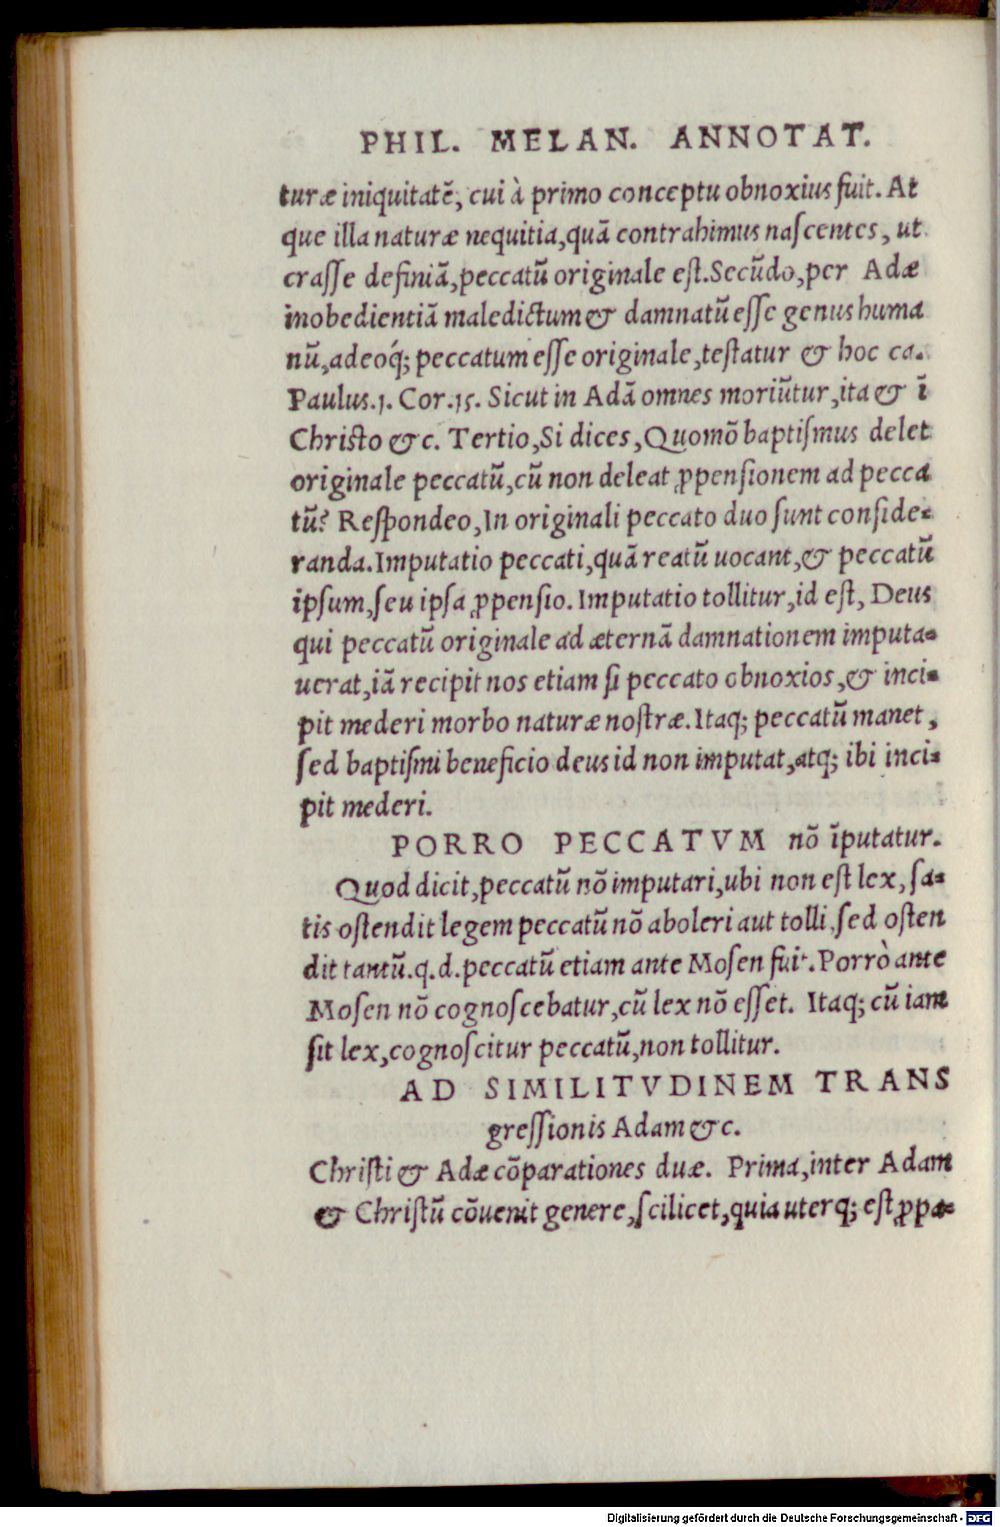 PHIL. MELAN. ANNOTAT.
turæ iniquitatẽ, cui à primo conceptu obnoxius fuit. At
que illa naturæ nequitia, quã contrahimus nascentes, ut
crasse definiã, peccatũ originale est. Secũdo, per Adæ
inobedientiã maledictum & damnatũ esse genus huma
nũ, adeoq́; peccatum esse originale, testatur & hoc ca.
Paulus.1. Cor.15. Sicut in Adã omnes moriũtur, ita & ĩ
Christo &c. Tertio, Si dices, Quomõ baptismus delet
originale peccatũ, cũ non deleat ꝓpensionem ad pecca
tũ? Respondeo, In originali peccato duo sunt conside-
randa. Imputatio peccati, quã reatũ uocant, & peccatũ
ipsum, seu ipsa ꝓpensio. Imputatio tollitur, id est, Deus
qui peccatũ originale ad æternã damnationem imputa-
uerat, iã recipit nos etiam si peccato obnoxios, & inci-
pit mederi morbo naturæ nostræ. Itaq; peccatũ manet,
sed baptismi beneficio deus id non imputat, atq; ibi inci-
pit mederi.
PORRO PECCATVM nõ ĩputatur.
Quod dicit, peccatũ nõ imputari, ubi non est lex, sa-
tis ostendit legem peccatũ nõ aboleri aut tolli, sed osten
dit tantũ. q. d. peccatũ etiam ante Mosen fuit. Porrò ante
Mosen nõ cognoscebatur, cũ lex nõ esset. Itaq; cũ iam
sit lex, cognoscitur peccatũ, non tollitur.
AD SIMILITVDINEM TRANS
gressionis Adam &c.
Christi & Adæ cõparationes duæ. Prima, inter Adam
& Christũ cõuenit genere, scilicet, quia uterq; est ꝓpa-
Digitalisierung gefördert durch die Deutsche Forschungsgemeinschaft - DFG